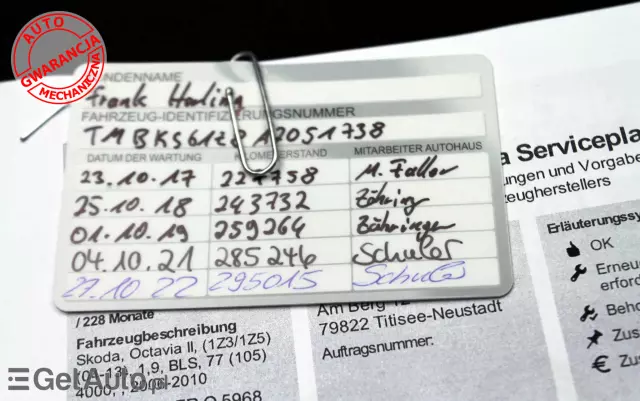 AUTO
GWARANCJA
MECHANICZNA
KUNDENNAME
Frank
FAHRZEUG-IDENTIFIZIERUNGSNUMMER
DATUM DER WARTUNG KILOMETERSTAND MITARBEITER AUTOHAUS
23.10.17 M. Faller
25.10.18 243732 Zähringer
01.10.19 259264 Zähringer
04.10.21 285246 Schuler
27.10 22 295015 Schuler
a Serviceplan
ungen und Vorgaben
zeugherstellers
Erläuterungssy
OK
Erneu
erford
Beho
Zus
Zus
/ 228 Monate
Fahrzeugbeschreibung
Skoda, Octavia II, (1Z3/1Z5)
(05-13), 1.9, BLS, 77 (105)
4000, , 2006-2010
Am Berg 12
79822 Titisee-Neustadt
Auftragsnummer:
GetAuto.pl